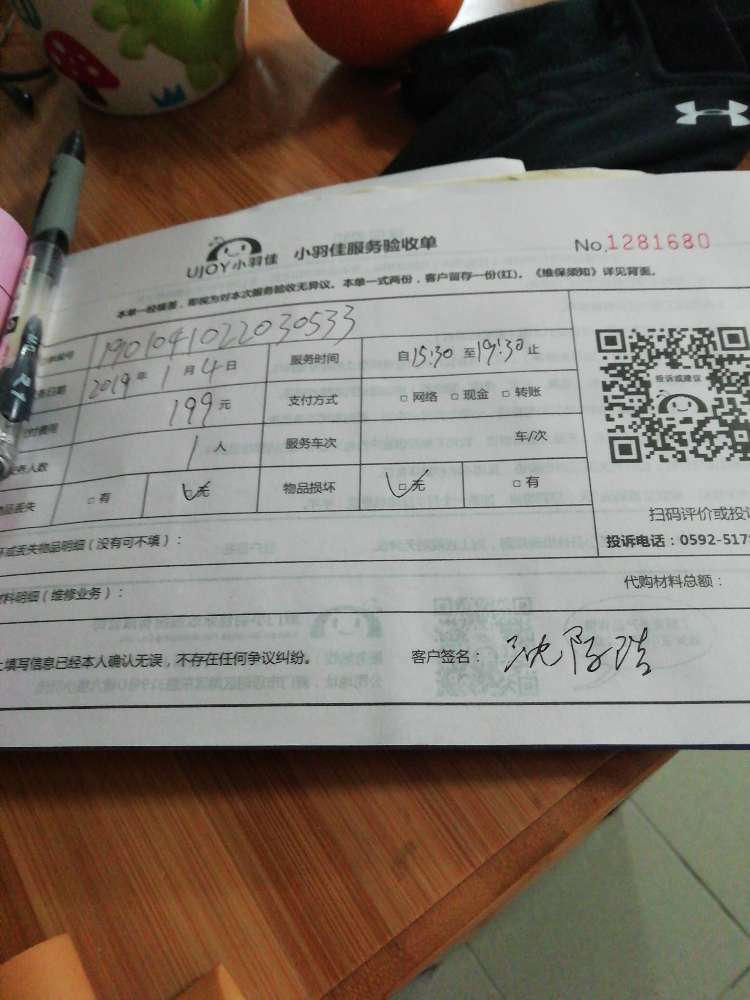 UJOY小羽佳 小羽佳服务验收单 No.1281680
本单一经签署，即视为对本次服务验收无异议。本单一式两份，客户留存一份(红)。《维保须知》详见背面。
编号 1901041022030533
日期 2019年1月4日 服务时间 自15:30至19:30止
费用 199元 支付方式 □网络 □现金 □转账
人数 1人 服务车次 车/次
品丢失 □有 □无 物品损坏 □无 □有
投诉或建议
扫码评价或投诉
投诉电话：0592-517
坏或丢失物品明细（没有可不填）：
材料明细（维修业务）： 代购材料总额：
上填写信息已经本人确认无误，不存在任何争议纠纷。 客户签名：